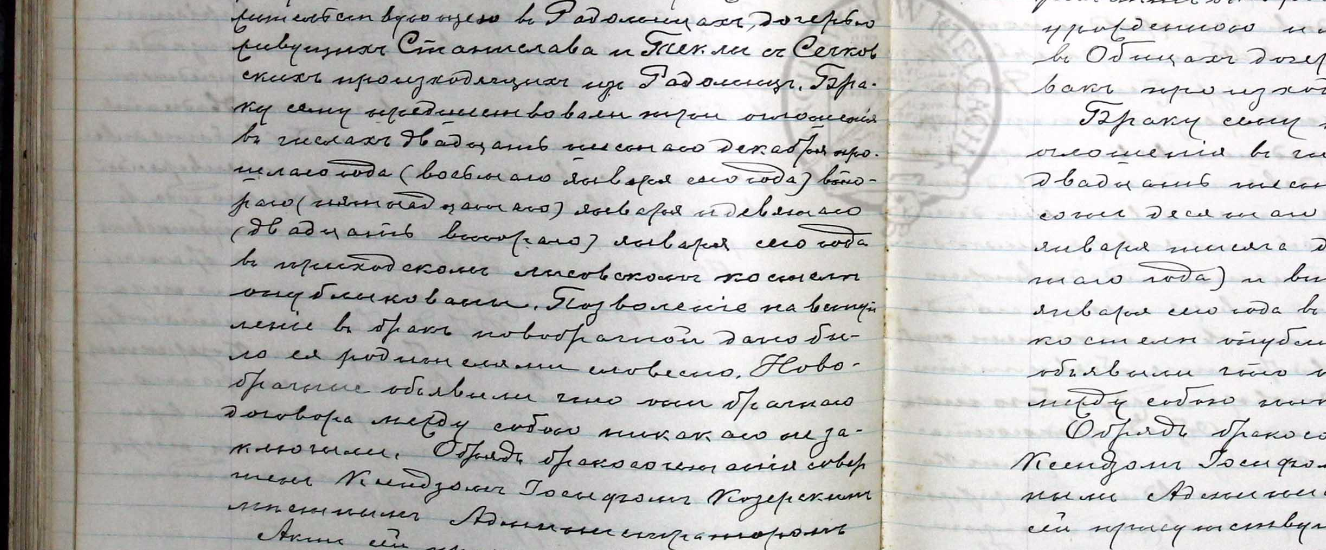 жительствующею в Радоницахъ, дочерью
живущихъ Станислава и Текли съ Сечков
скихъ произходящихъ изъ Радоницъ. Бра-
ку сему предшествовали три оглошенія
въ числахъ двадцать шестаго декабря про-
шлаго года (восьмаго января сего года) вто-
раго (пятнадцатаго) января и девятаго
(двадцать втораго) января сего года
въ приходскомъ лисовскомъ костели
опубликованы. Позволеніе на вступ
леніе въ бракъ новобрачной дано бы-
ло ея родителями словесно. Ново-
брачные объявили что они брачнаго
договора между собою никакаго не за-
ключили. Обрядъ бракосочетанія совер
шенъ Ксендзомъ Іосифомъ Козерскимъ
мѣстнымъ Администраторомъ
Актъ сей
урожденною
въ Общахъ дочер
вакъ произхо
Браку сему
оглошенія въ чи
двадцать шест
сотъ десятаго
января тысяча д
таго года) и вт
января сего года въ
костели опубли
объявили что
между собою ник
Обрядъ бракосо
Ксендзомъ Іосифом
нымъ Админи
сей присутству